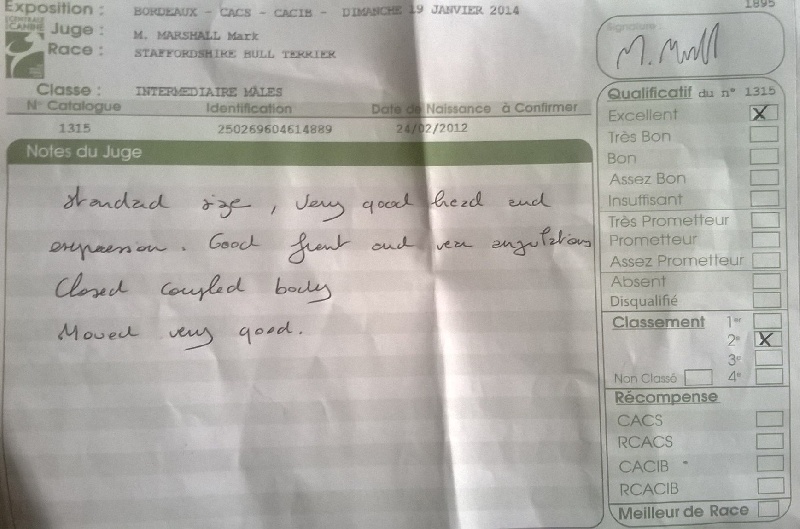 Exposition : BORDEAUX - CACS - CACIB - DIMANCHE 19 JANVIER 2014
Juge : M. MARSHALL Mark
Race : STAFFORDSHIRE BULL TERRIER
CENTRALE
CANINE
Classe : INTERMEDIAIRE MALES
N° Catalogue Identification Date de Naissance à Confirmer
1315 250269604614889 24/02/2012
Notes du Juge
standard size, very good head and
expression. Good front and rear angulations
Closed coupled body
Moved very good.
1895
Signature :
M. Mull
Qualificatif du n° 1315
Excellent X
Très Bon
Bon
Assez Bon
Insuffisant
Très Prometteur
Prometteur
Assez Prometteur
Absent
Disqualifié
Classement 1er
2e X
3e
Non Classé 4e
Récompense
CACS
RCACS
CACIB
RCACIB
Meilleur de Race